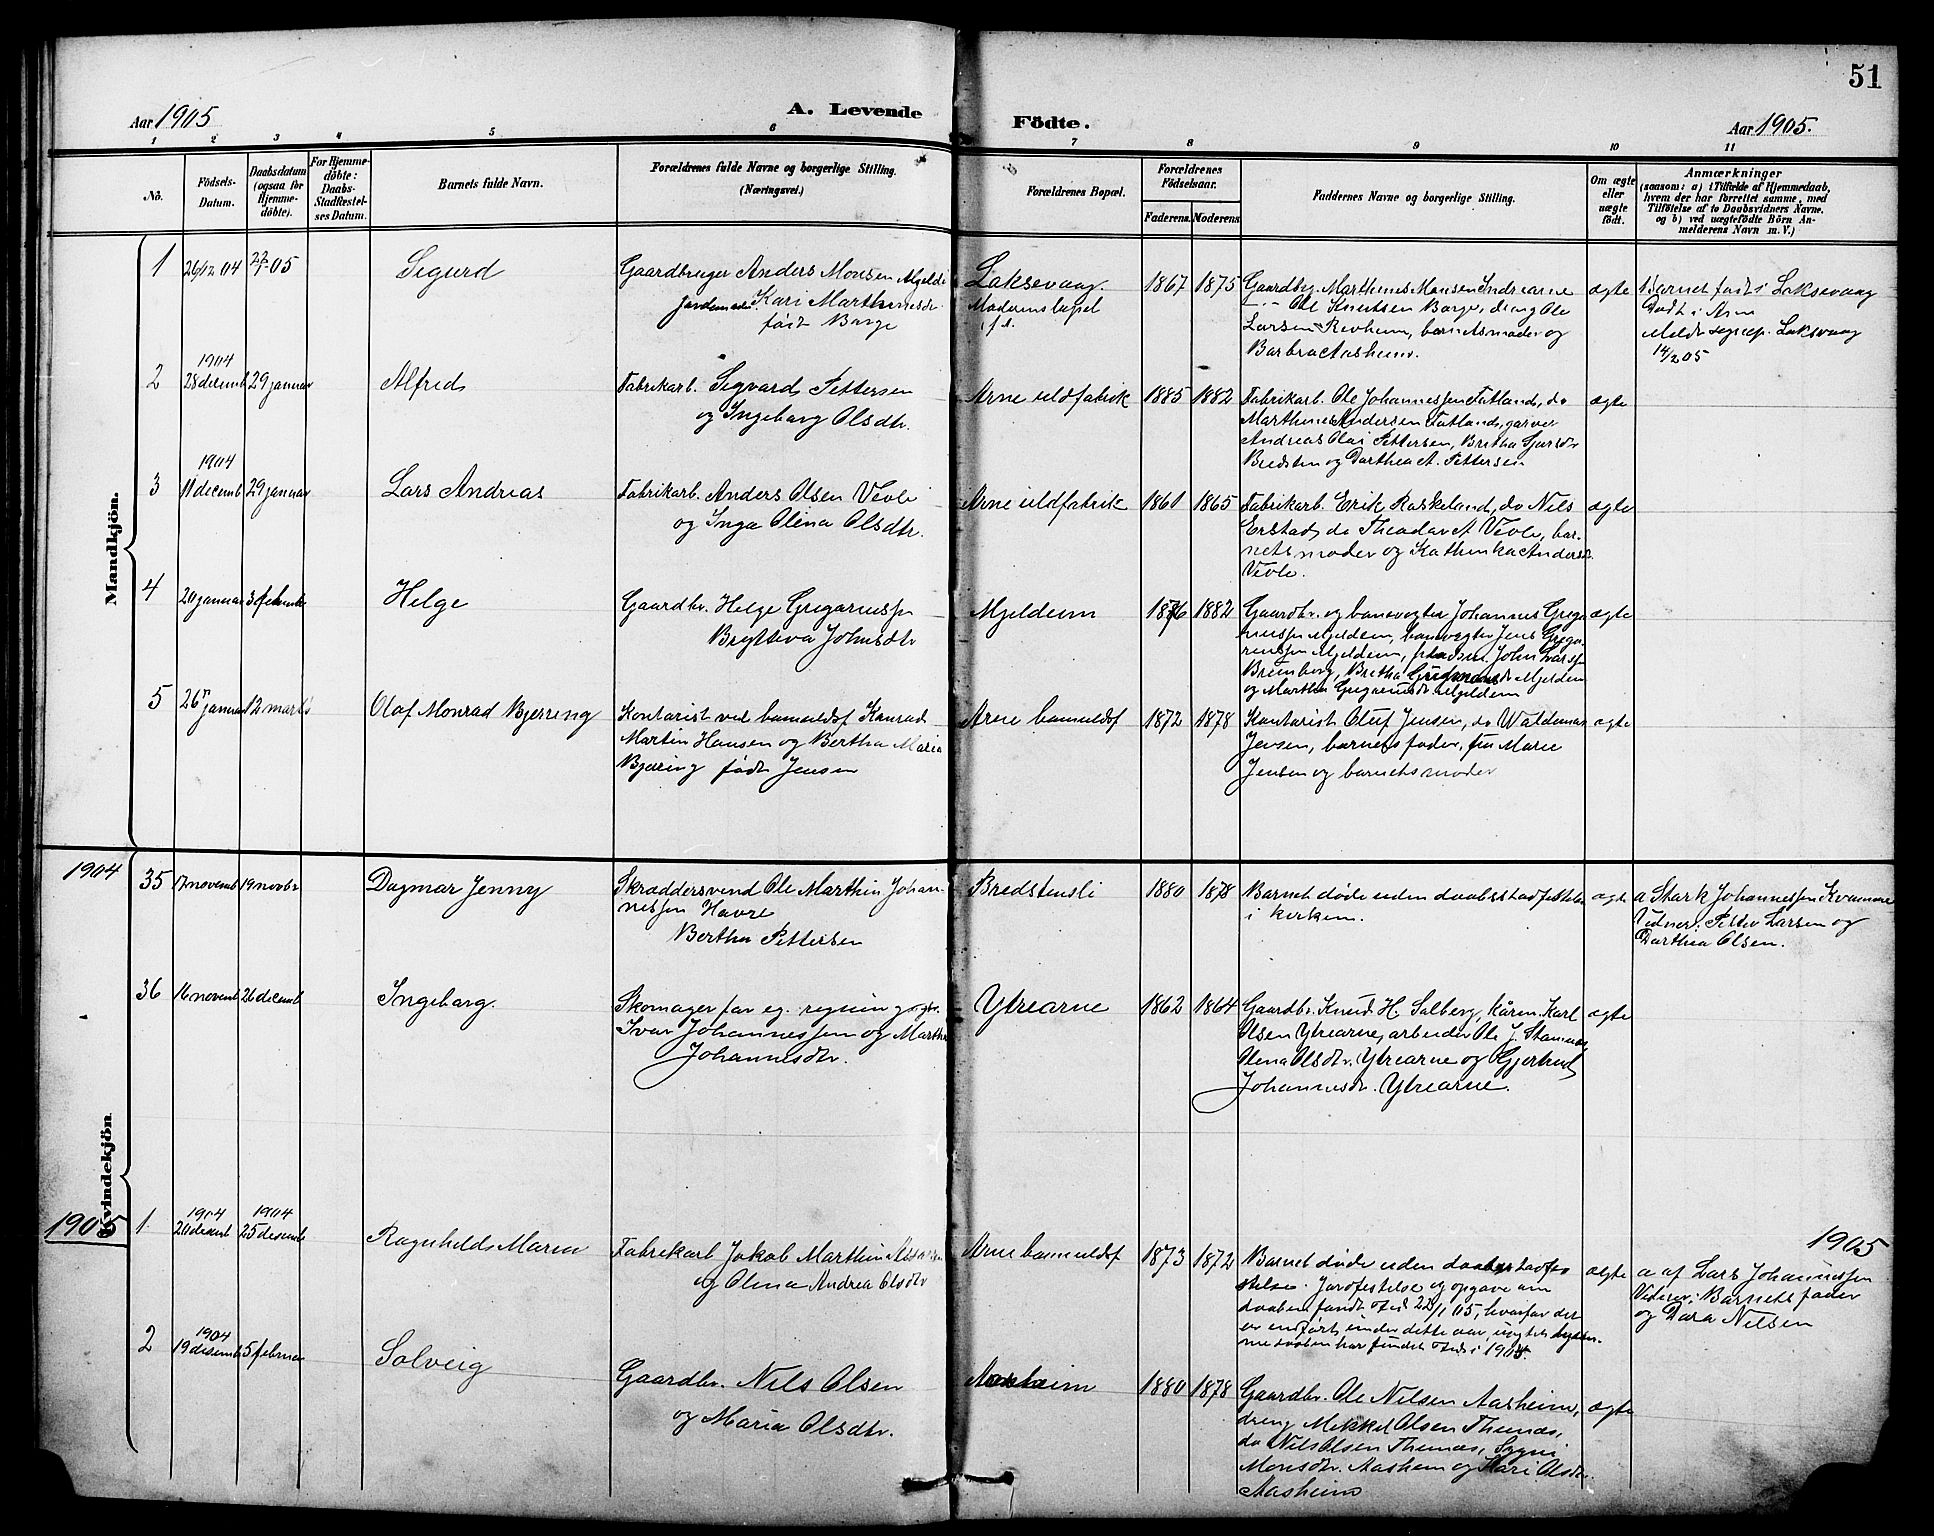 51
Aar 1905
A. Levende
Födte.
Aar 1905.
1 2 3 4 5 6 7 8 9 10 11
No.
Födsels-
Datum.
Daabsdatum
(ogsaa for
Hjemme-
döbte).
For Hjemme-
döbte:
Daabs-
Stadfæstel-
ses Datum.
Barnets fulde Navn.
Forældrenes fulde Navne og borgerlige Stilling.
(Næringsvei.)
Forældrenes Bopæl.
Forældrenes
Födselsaar.
Faderens.
Moderens.
Faddernes Navne og borgerlige Stilling.
Om ægte
eller
uægte
födt.
Anmærkninger
(saasom: a) i Tilfælde af Hjemmedaab,
hvem der har forrettet samme, med
Tilföielse af to Daabsvidners Navne,
og b) ved uægtefödte Börn An-
melderens Navn m. V.)
Mandkjön.
1
26/12 04
22/1 05
Sigurd
Gaardbruger Anders Monsen Mjelde
Jordemoder Kari Marthinusdr
født Borge
Laksevaag.
Moderens bopel
1867
1875
Gaardbr. Marthinus Monsen Indrearne
Ole Knutsen Borge, dreng Ole
Larsen Revheim, barnets moder og
Barbra Aasheim.
ægte
Barnet født i Laksevaag
Døbt i Arne
Meldt sognep. Laksevaag
14/2 05
2
1904
28 decemb
29 januar
Alfred
Fabrikarb. Sigvard Pettersen
og Ingeborg Olsdtr.
Arne uldfabrik
1885
1882
Fabrikarb. Ole Johannessen Fatland, do
Marthinus Andersen Fatland, garver
Andreas Olai Pettersen, Britha Sjursdr
Bredsten og Darthea A. Pettersen
ægte
3
1904
11 decemb
29 januar
Lars Andreas
Fabrikarb. Anders Olsen Vevle
og Inga Olina Olsdtr.
Arne uldfabrik
1861
1865
Fabrikarb. Erik Raskeland, do Nils
Erstad, do Theodor A Vevle, bar-
nets moder og Kathinka Anders
Vevle.
ægte
4
20 januar
3 februar
Helge
Gaardbr. Helge Gregoriussen
Brytteva Johnsdtr
Mjeldeim
1876
1882
Gaardbr. og banevogter Johannes Grego
riussen Mjeldem, banevogter Jens Grego
riussen Mjeldem, John Larssen
Breinborg, Britha Mjeldem
og Martha Gregoriusdr. Mjeldem
ægte
5
26 januar
12 marts
Olaf Monrad Bjerring
Kontorist ved bomuldsf Konrad
Martin Hansen og Bertha Maria
Bjerring født Jensen
Arne bomuldsf
1872
1878
Kontorist Oluf Jensen, do Waldemar
Jensen, barnets fader, fru Marie
Jensen og barnets moder
ægte
1904
35
17 novemb
19 novbr
Dagmar Jenny
Skræddersvend Ole Marthin Johan-
nessen Havre
Bertha Pettersen
Bredstensli
1880
1878
Barnet døde uden daabsstadfestelse
i kirken.
ægte
a Stark Johannessen Kvamme
Vidner: Petter Larsen og
Darthea Olsen.
36
16 novemb
26 decemb
Ingeborg.
Skomager for eg. regning
Ivar Johannessen og Martha
Johannesdtr.
Ytrearne
1862
1864
Gaardbr. Knud H. Solberg, Kåren Karl
Olsen Ytrearne, arbeider Ole J. Stamnes
Olina Olsdtr. Ytrearne og Gjertrud
Johannesdr. Ytrearne.
ægte
Kvindekjön
1905
1.
1904
20 decemb
1904
25 decemb
Ragnhild Maria
Fabrikarb Jakob Marthin
og Olina Andrea Olsdtr
Arne bomuldsf
1873
1872
Barnet døde uden daabsstadfæ
stelse. Jordfestelse og opgave om
daaben fandt sted 22/1 05, hvorfor det
er indført under dette aar, uagtet hjem-
medaaben har fundet sted i 1904.
ægte
1905
a af Lars Johannessen
Vidner: Barnets fader
og Dora Nilsen
2
1904
19 desemb
5 februar
Solveig
Gaardbr. Nils Olsen
og Maria Olsdtr.
Aasheim
1880
1878
Gaardbr. Ole Nilsen Aasheim,
dreng Mikkel Olsen Thunæs,
do Nils Olsen Thunæs, Sygni
Monsdtr. Aasheim og Kari Olsdr
Aasheim
ægte